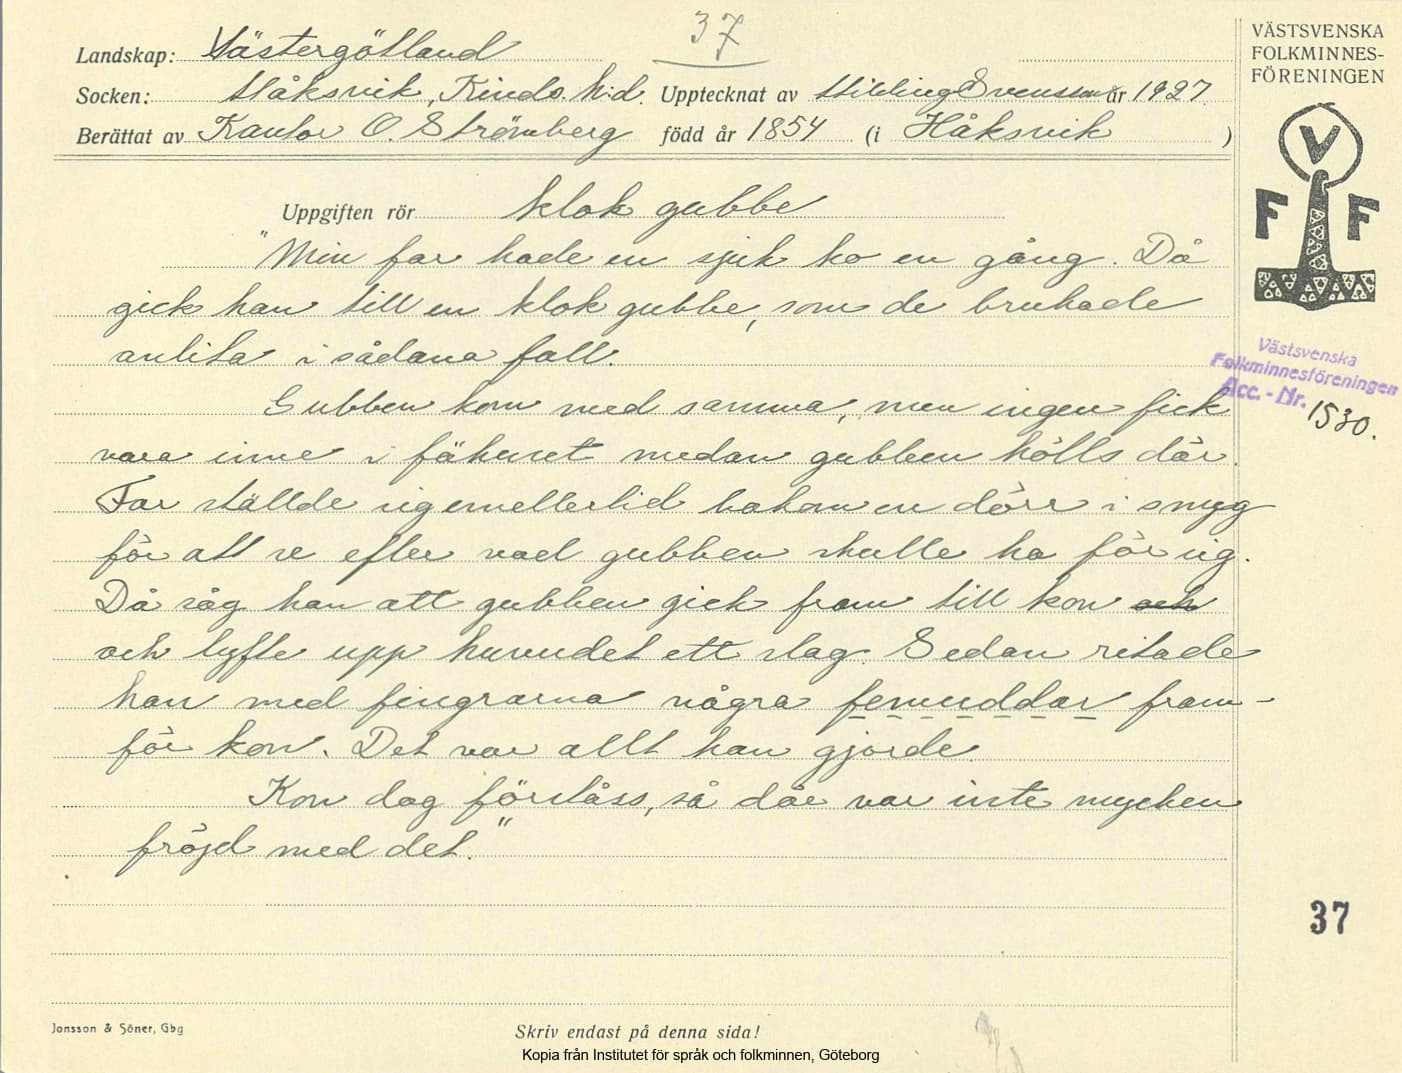 37
VÄSTSVENSKA
FOLKMINNES-
FÖRENINGEN
Landskap: Västergötland
Socken: Håksvik, Kinds h:d. Upptecknat av Hilding Svensson år 1927.
Berättat av Kantor O. Strömberg född år 1854 (i Håksvik )
V
F F
Uppgiften rör klok gubbe
"Min far hade en sjuk ko en gång. Då
gick han till en klok gubbe, som de brukade
anlita i sådana fall.
Västsvenska
Folkminnesföreningen
Acc. - Nr. 1530.
Gubben kom med samma, men ingen fick
vara inne i fähuset medan gubben hölls där.
Far ställde sig emellertid bakom en dörr i smyg
för att se efter vad gubben skulle ha för sig.
Då såg han att gubben gick fram till kon och
och lyfte upp huvudet ett slag. Sedan ritade
han med fingrarna några femuddar fram-
för kon. Det var allt han gjorde.
Kon dog förståss, så där var inte mycken
fröjd med det."
37
Jonsson & Söner, Gbg
Skriv endast på denna sida!
Kopia från Institutet för språk och folkminnen, Göteborg